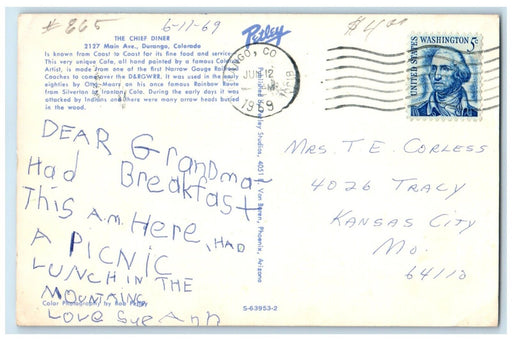 # 865
6-11-69
$4.00
THE CHIEF DINER
2127 Main Ave., Durango, Colorado
Is known from Coast to Coast for its fine food and service.
This very unique Cafe, all hand painted by a famous
Artist, is made from one of the first Narrow Gauge Railroad
Coaches to come over the D&RGWRR. It was used in the early
eighties by Otto Mears on his once famous Rainbow Route
from Silverton to Ironton, Colo. During the early days it was
attacked by Indians and there were many arrow heads buried
in the wood.
Petley
CO
JUN 12
1969
UNITED STATES
WASHINGTON 5c
DEAR GRANDMA-
HAD BREAKFAST
THIS A.M. HERE, HAD
A PICNIC
LUNCH IN THE
MOUNTAINS
LOVE SUE ANN
Color Photography by Bob Petley
Petley Studios, 4051 E. Van Buren, Phoenix, Arizona
S-63953-2
MRS. T. E. CORLESS
4026 TRACY
KANSAS CITY
MO.
64110